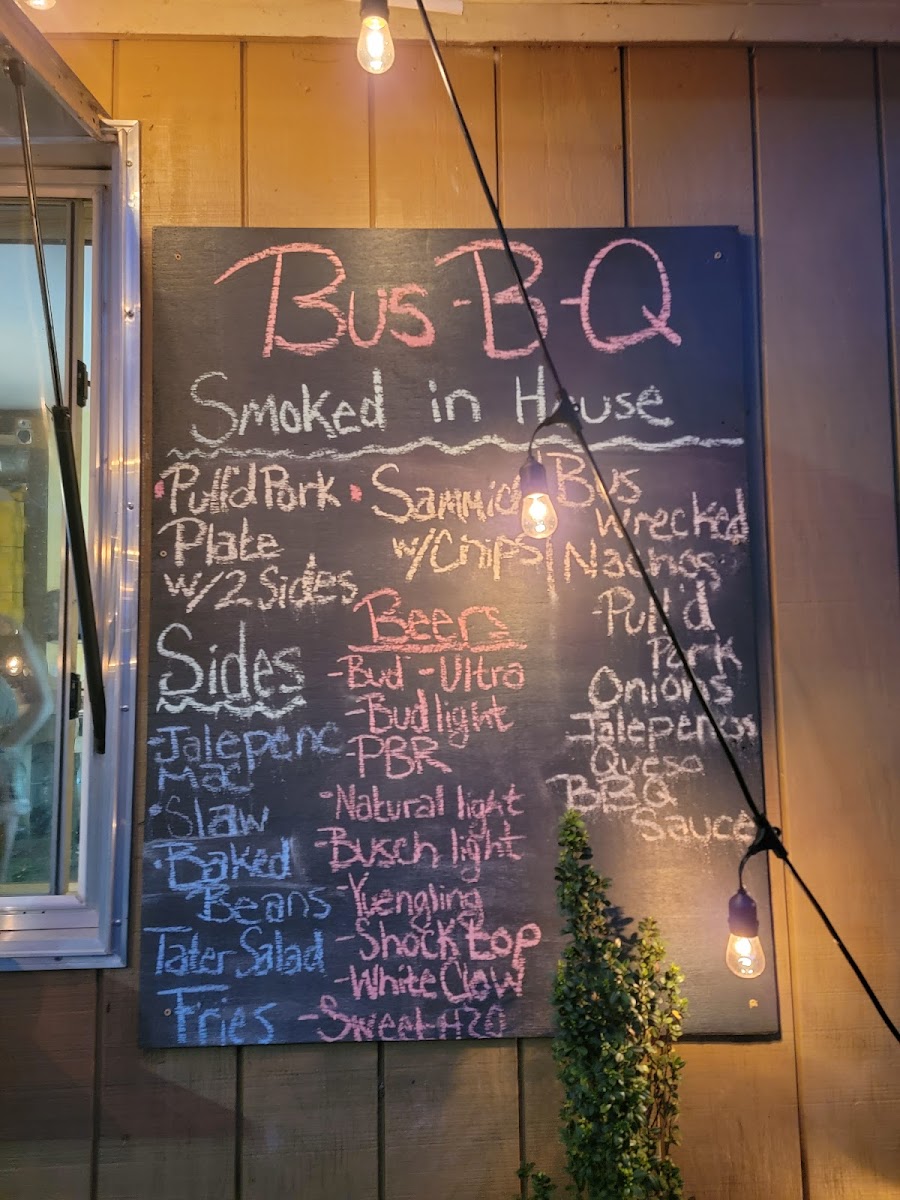 Bus-B-Q
Smoked in House
Pull'd Pork
Plate
w/2 Sides
Sides
-Jalepeno
Mac
Slaw
Baked
Beans
Tater Salad
Fries
w/Chips
Beers
-Bud -Ultra
-Bud light
-PBR
-Natural light
-Busch light
-Yuengling
-Shock top
-White Claw
-Sweet H20
Bus
Wrecked
Nachos
-Pull'd
Pork
Onions
Jalepenos
Queso
BBQ
Sauce